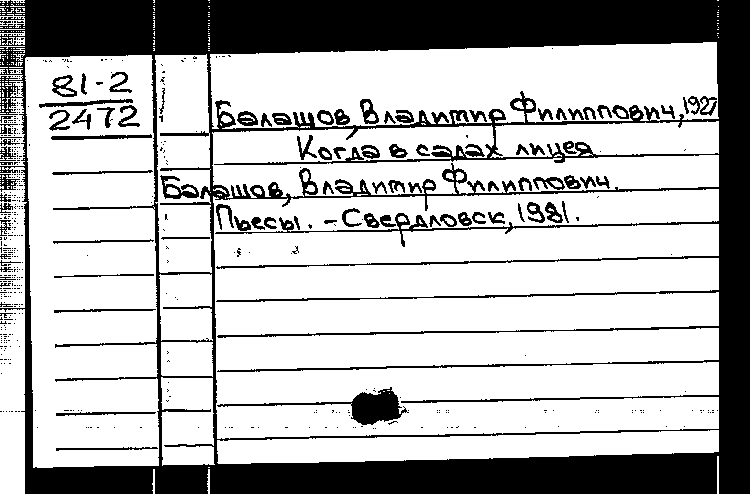 81-2
2472
Балашов, Владимир Филиппович, 1927
Когда в садах лицея
Балашов, Владимир Филиппович.
Пьесы. - Свердловск, 1981.